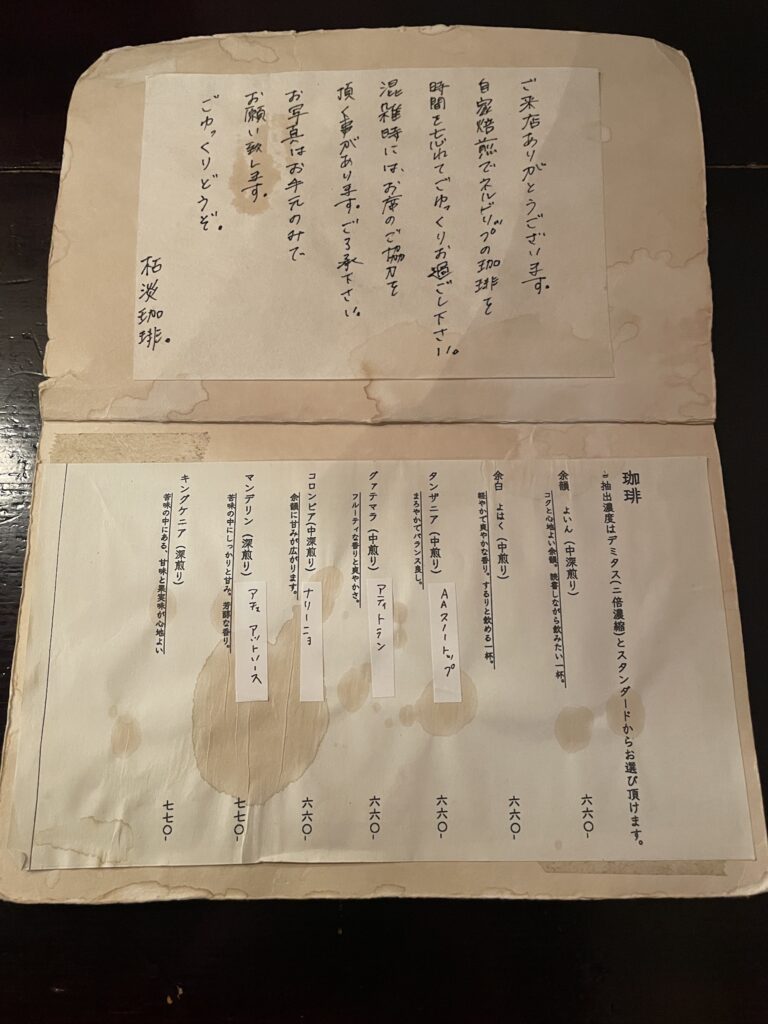 ご来店ありがとうございます。
自家焙煎でネルドリップの珈琲を
時間を忘れてごゆっくりお過ごし下さい。
混雑時には、お席のご協力を
頂く事があります。ご了承下さい。
お写真はお手元のみで
お願い致します。
ごゆっくりどうぞ。
枯淡珈琲。
珈琲
抽出濃度はデミタス(二倍濃縮)とスタンダードからお選び頂けます。
余韻 よいん (中深煎り) 六六〇-
コクと心地よい余韻。読書しながら飲みたい一杯。
余白 よはく (中煎り) 六六〇-
軽やかで爽やかな香り。するりと飲める一杯。
タンザニア (中煎り) AAスノートップ 六六〇-
まろやかでバランス良し。
グァテマラ (中煎り) アティトラン 六六〇-
フルーティな香りと爽やかさ。
コロンビア(中深煎り) ナリーニョ 六六〇-
余韻に甘みが広がります。
マンデリン (深煎り) アチェ アットゥリース 七七〇-
苦味の中にしっかりと甘み。芳醇な香り。
キングケニア (深煎り) 七七〇-
苦味の中にある、甘味と果実味が心地よい